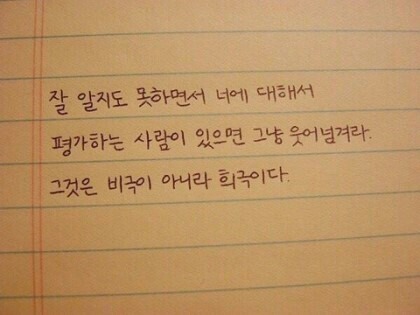 잘 알지도 못하면서 너에 대해서
평가하는 사람이 있으면 그냥 웃어넘겨라.
그것은 비극이 아니라 희극이다.